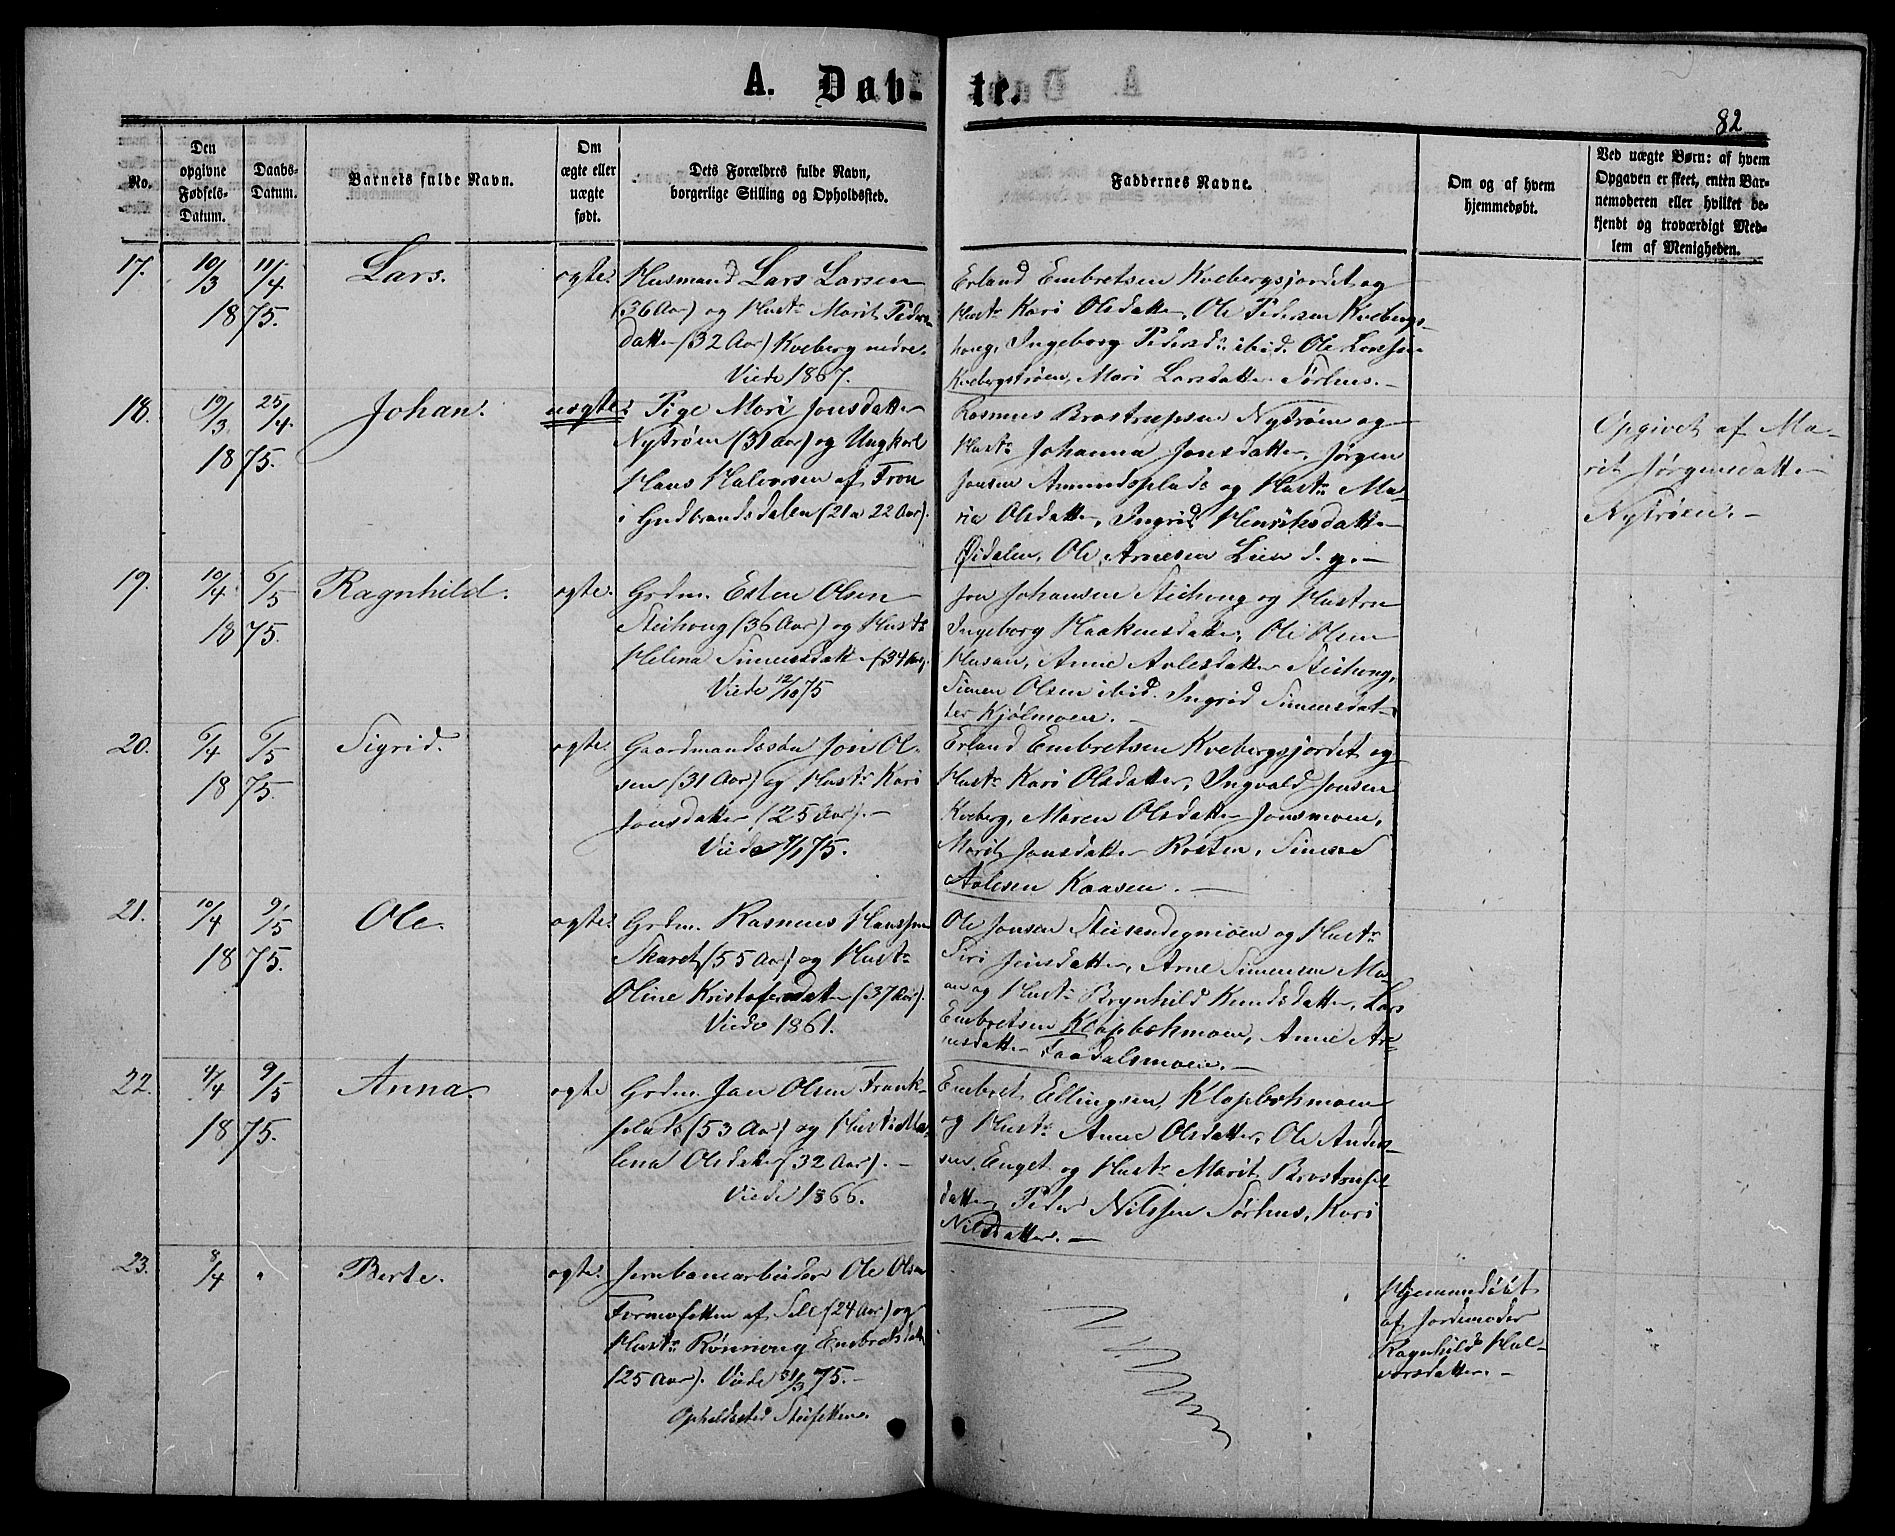 A. Døb-te.
82
No.
Den opgivne Fødsels-Datum.
Daabs-Datum.
Barnets fulde Navn.
Om ægte eller uægte født.
Dets Forældres fulde Navn, borgerlige Stilling og Opholdssted.
Faddernes Navne.
Om og af hvem hjemmedøbt.
Ved uægte Børn: af hvem Opgaven er skeet, enten Barnemoderen eller hvilket bekjendt og troværdigt Medlem af Menigheden.
17. 10/3 11/4 1875. Lars. ægte.
Husmand Lars Larsen
(36 Aar) og Hustr Marit Peders-
datter (32 Aar) Kveberg nedre.
Viede 1867.
Erland Embretsen Kvebergsjordet og
Hustr Kari Olsdatter, Ole Pedersen Kvebergs-
houg, Ingeborg Pedersd. ibid. Ole Larsen
Kvebergstrøen, Mari Larsdatter Sørhus.-
18. 19/3 25/4 1875. Johan. uægte.
Pige Mari Jonsdatter
Nytrøen (31 Aar) og Ungkarl
Hans Halvorsen af Fron
i Gudbrandsdalen (21 a 22 Aar).
Rasmus Brostrupsen Nytrøen og
Hustr Johanna Jonsdatter, Jørgen
Jonsen Amundsplads og Hustr Ma-
ria Olsdatter, Ingrid Henriksdatter
Øidalen, Ole Arnesen Lien d. y.-
Opgivet af Ma-
rit Jørgensdatter
Nytrøen.-
19. 10/4 6/5 1875. Ragnhild. ægte.
Grdm. Esten Olsen
Steihoug (36 Aar) og Hustr
Helena Simensdatter (34 Aar).
Viede 12/10 75
Jon Johansen Steihoug og Hustru
Ingeborg Haakensdatter, Ole Olsen
Husan, Anne Avlesdatter Steihoug,
Simen Olsen ibid. Ingrid Simensdat-
ter Kjølmoen.-
20. 6/4 6/5 1875. Sigrid. ægte.
Gaardmandssøn Jon Ol-
sen (31 Aar) og Hustr Kari
Jonsdatter (25 Aar).-
Viede 75.
Erland Embretsen Kvebergsjordet og
Hustr Kari Olsdatter, Ingvald Jonsen
Kveberg, Maren Olsdatter Jonsmoen,
Marit Jonsdatter Rosten, Simen
Avlesen Kaasen.-
21. 10/4 9/5 1875. Ole. ægte.
Grdm. Rasmus Hanssen
Skaret (55 Aar) og Hustr
Oline Kristofersdatter (37 Aar).
Viede 1861.
Ole Jonsen Steisandegmoen og Hustr
Siri Jensdatter, Arne Simensen Mo-
en og Hustr Brynhild Knudsdatter, Lars
Embretsen Klopbækmoen, Anne Ar-
nesdatter Faadalsmoen.-
22. 4/4 9/5 1875. Anna. ægte
Grdm. Jon Olsen Frank-
plads (53 Aar) og Hustr Ma-
lena Olsdatter (32 Aar).-
Viede 1866.
Embret Ellingsen Klopbækmoen
og Hustr Anne Olsdatter, Ole Anders-
sen Enget og Hustr Marit Brostrups-
datter, Peder Nilssen Sørhus, Kari
Nilsdatter.-
23. 8/4 " Berte. ægte.
Jernbanearbeider Ole Olsen
Formofetten af Sell (24 Aar) og
Hustr Rønnoug Embretsdatter
(25 Aar). Viede 31/3 75.-
Opholdssted Steifetten.
Hjemmedøbt
af Jordemoder
Ragnhild Hal-
vorsdatter.-